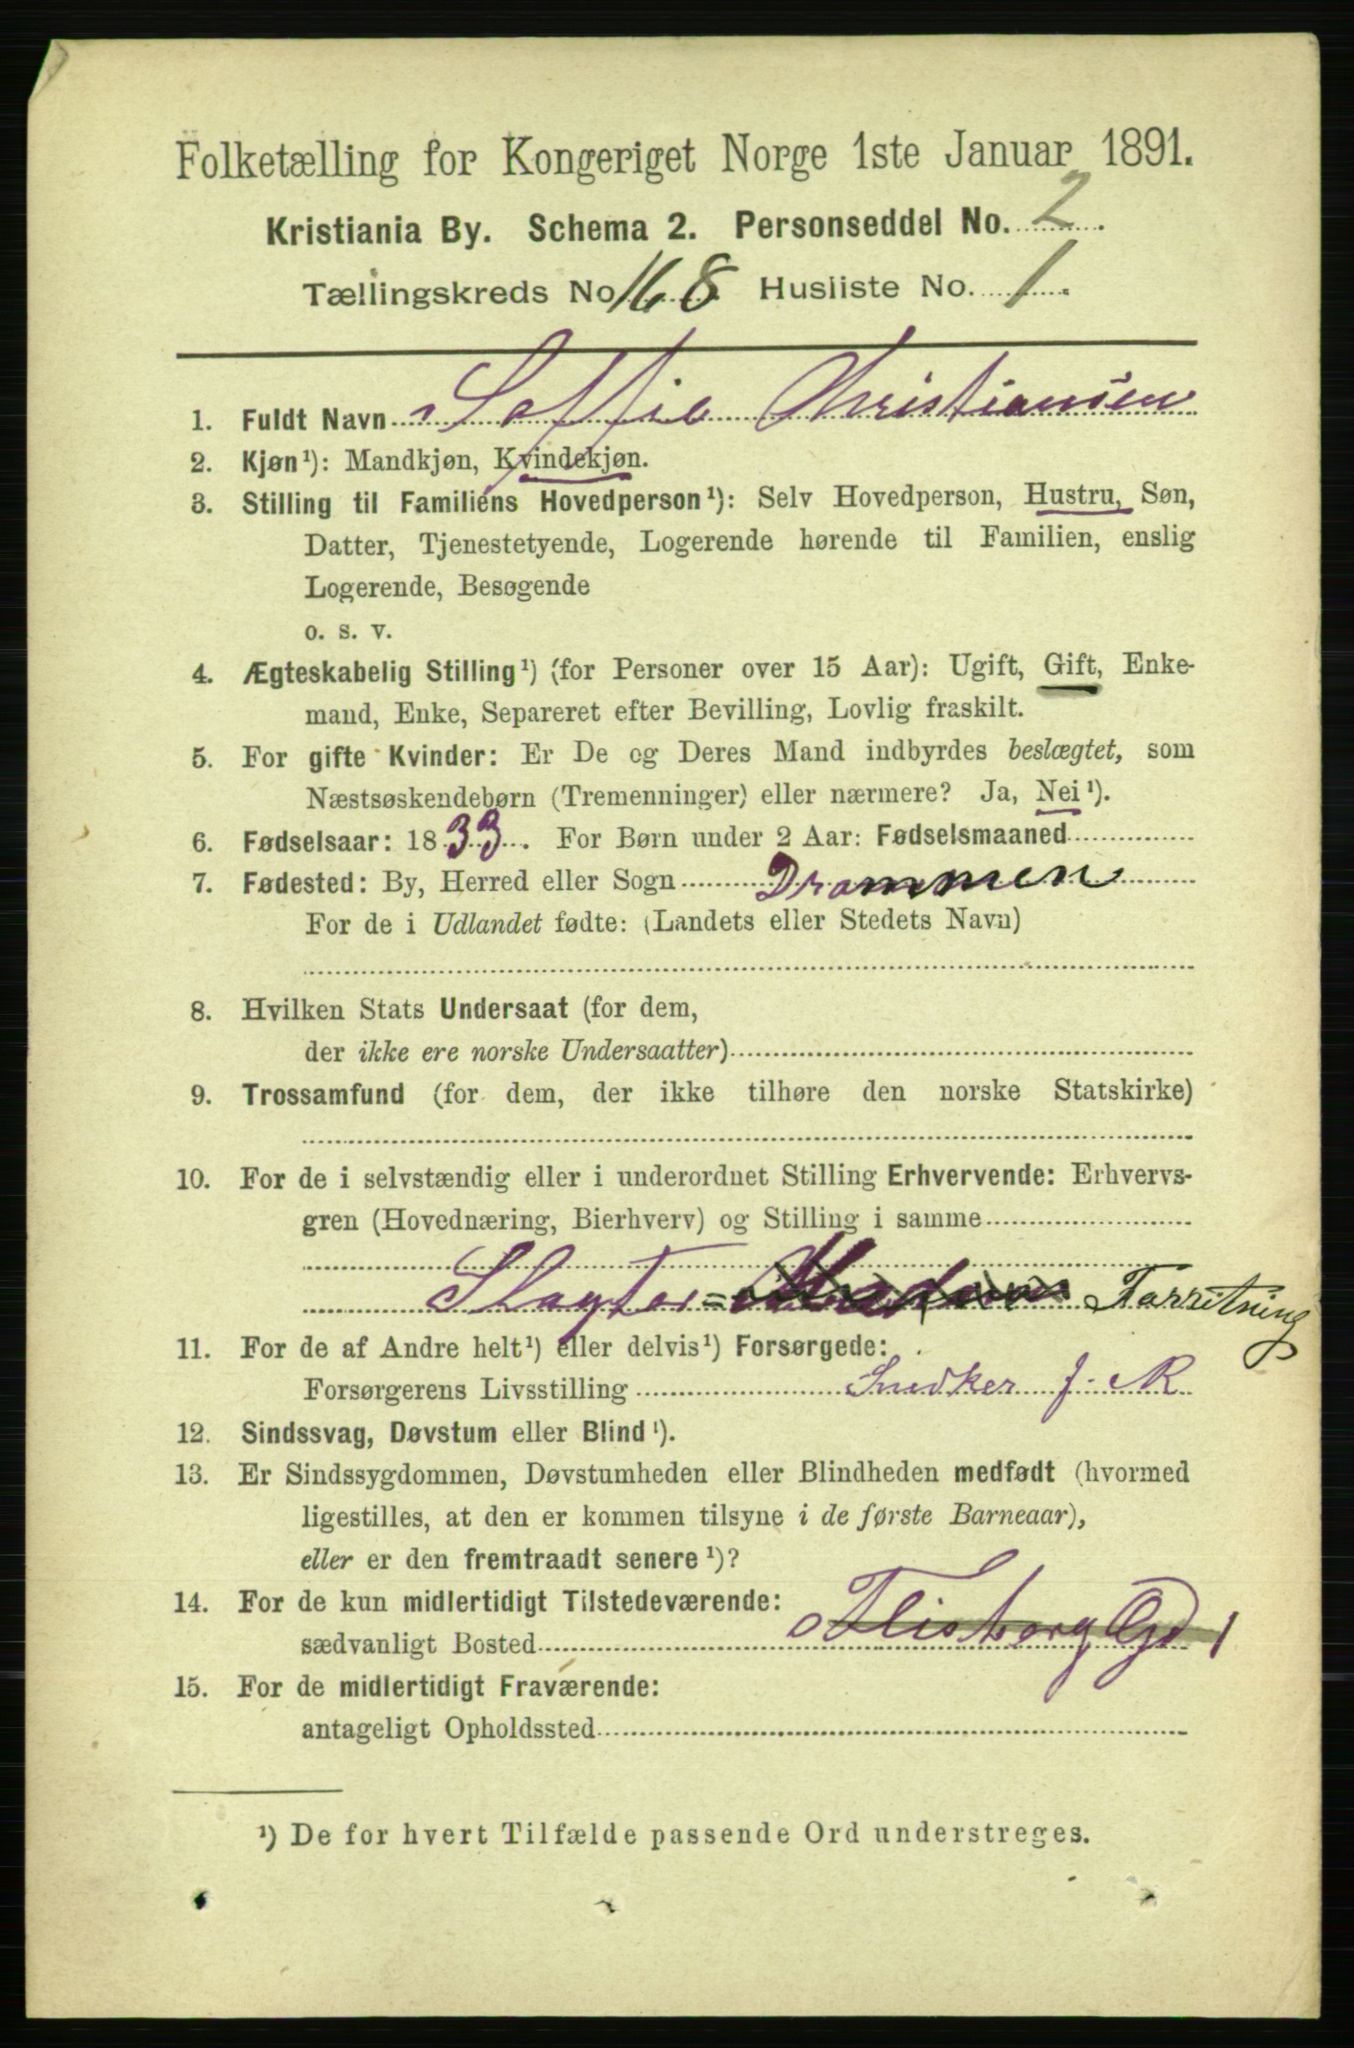 Folketælling for Kongeriget Norge 1ste Januar 1891.
Kristiania By. Schema 2. Personseddel No. 2.
Tællingskreds No 168 Husliste No. 1.
1. Fuldt Navn Soffie Christiansen
2. Kjøn¹): Mandkjøn, Kvindekjøn.
3. Stilling til Familiens Hovedperson¹): Selv Hovedperson, Hustru, Søn,
Datter, Tjenestetyende, Logerende hørende til Familien, enslig
Logerende, Besøgende
o. s. v.
4. Ægteskabelig Stilling¹) (for Personer over 15 Aar): Ugift, Gift, Enke-
mand, Enke, Separeret efter Bevilling, Lovlig fraskilt.
5. For gifte Kvinder: Er De og Deres Mand indbyrdes beslægtet, som
Næstsøskendebørn (Tremenninger) eller nærmere? Ja, Nei¹).
6. Fødselsaar: 1833. For Børn under 2 Aar: Fødselsmaaned
7. Fødested: By, Herred eller Sogn Drammen
For de i Udlandet fødte: (Landets eller Stedets Navn)
8. Hvilken Stats Undersaat (for dem,
der ikke ere norske Undersaatter)
9. Trossamfund (for dem, der ikke tilhøre den norske Statskirke)
10. For de i selvstændig eller i underordnet Stilling Erhvervende: Erhvervs-
gren (Hovednæring, Bierhverv) og Stilling i samme
Slagter= Forretning
11. For de af Andre helt¹) eller delvis¹) Forsørgede:
Forsørgerens Livsstilling Snedker J. N
12. Sindssvag, Døvstum eller Blind¹).
13. Er Sindssygdommen, Døvstumheden eller Blindheden medfødt (hvormed
ligestilles, at den er kommen tilsyne i de første Barneaar),
eller er den fremtraadt senere¹)?
14. For de kun midlertidigt Tilstedeværende:
sædvanligt Bosted Flisberg Gd 1
15. For de midlertidigt Fraværende:
antageligt Opholdssted
¹) De for hvert Tilfælde passende Ord understreges.